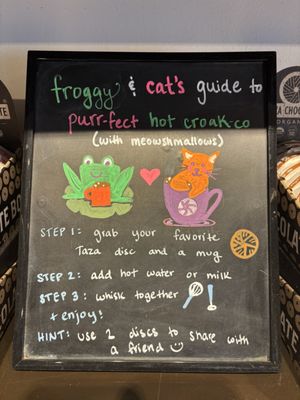 froggy & cat's guide to
purr-fect hot croak-co
(with meowshmallows)
STEP 1: grab your favorite
Taza disc and a mug
STEP 2: add hot water or milk
STEP 3: whisk together
+ enjoy!
HINT: use 2 discs to share with
a friend